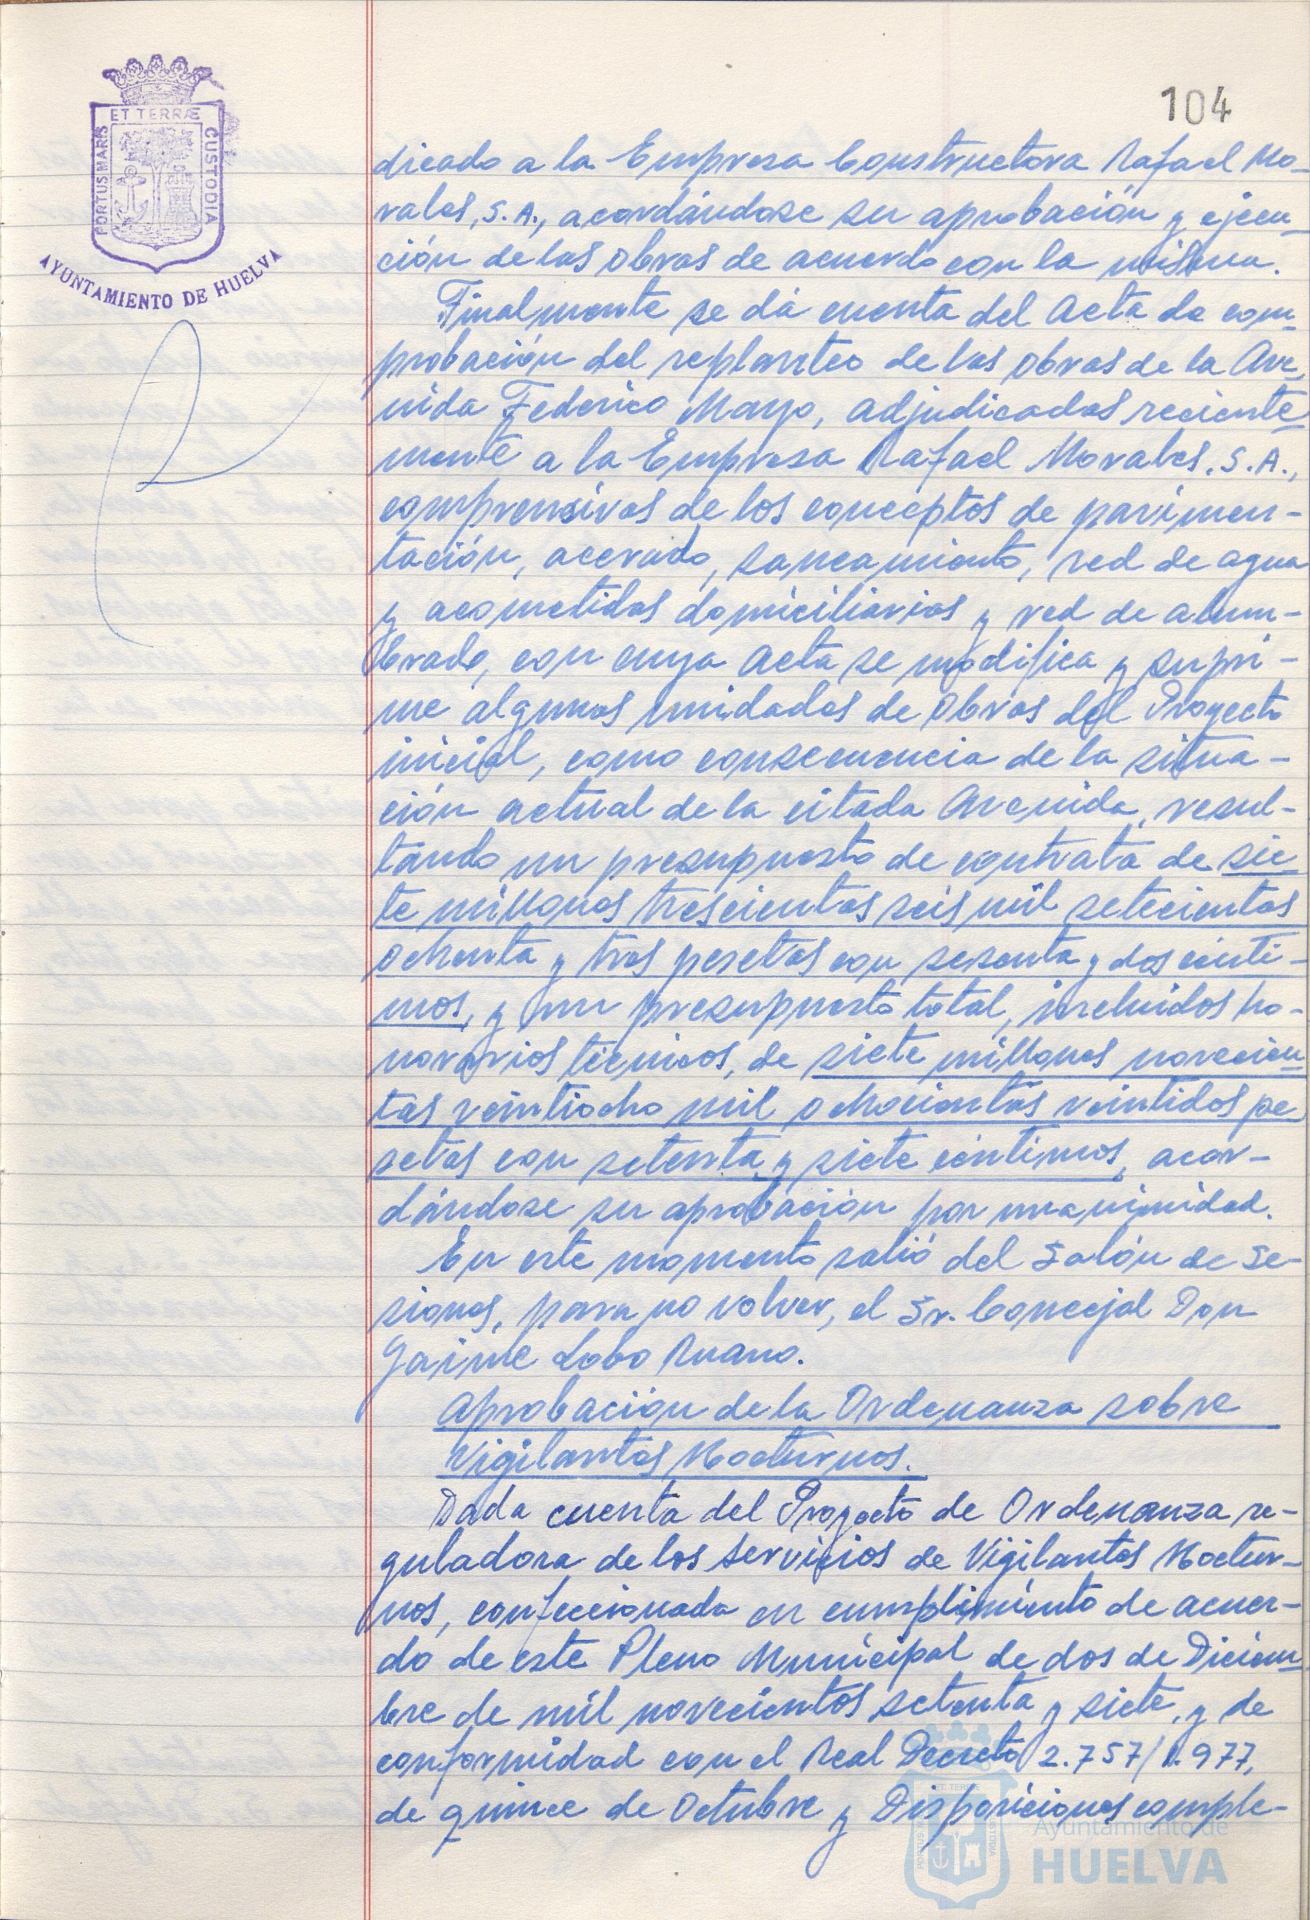 104
ET TERRÆ
PORTUS MARIS
CUSTODIA
AYUNTAMIENTO DE HUELVA
dicado a la Empresa Constructora Rafael Mo-
rales, S.A., acordándose su aprobación y ejecu-
ción de las obras de acuerdo con la misma.
Finalmente se dá cuenta del Acta de com-
probación del replanteo de las obras de la Ave-
nida Federico Mayo, adjudicadas reciente-
mente a la Empresa Rafael Morales, S.A.,
comprensivas de los conceptos de pavimen-
tación, acerado, saneamiento, red de agua
y acometidas domiciliarias y red de alum-
brado, con cuya Acta se modifica y supri-
me algunas unidades de obras del Proyecto
inicial, como consecuencia de la situa-
ción actual de la citada Avenida, resul-
tando un presupuesto de contrata de sie-
te millones trescientas seis mil setecientas
ochenta y tres pesetas con sesenta y dos cénti-
mos, y un presupuesto total, incluidos ho-
norarios técnicos, de siete millones novecien-
tas veintiocho mil ochocientas veintidos pe-
setas con setenta y siete céntimos, acor-
dándose su aprobación por unanimidad.
En este momento salió del Salón de Se-
siones, para no volver, el Sr. Concejal Don
Jaime Lobo Ruano.
Aprobación de la Ordenanza sobre
Vigilantes Nocturnos.
Dada cuenta del Proyecto de Ordenanza re-
guladora de los servicios de Vigilantes Noctur-
nos, confeccionada en cumplimiento de acuer-
do de este Pleno Municipal de dos de Diciem-
bre de mil novecientos setenta y siete, y de
conformidad con el Real Decreto 2.757/1.977,
de quince de Octubre y Disposiciones comple-
Ayuntamiento de
HUELVA